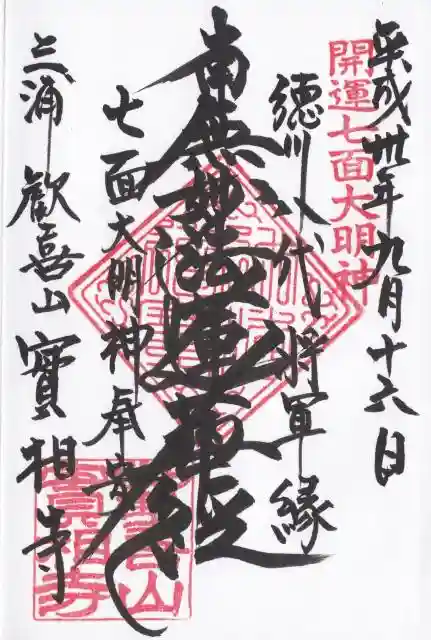 平成卅年九月十六日
開運七面大明神
徳川八代将軍縁
南無妙法蓮華経
七面大明神奉安
三浦 歓喜山 寶相寺